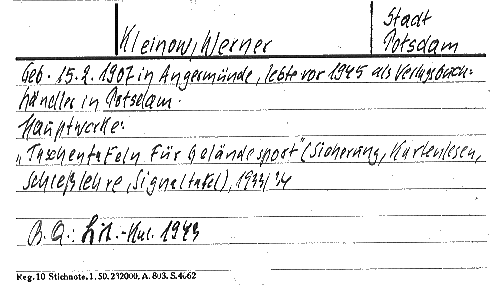 Kleinow, Werner
Stadt
Potsdam
Geb. 15.2.1907 in Angermünde, lebte vor 1945 als Verlagsbuch-
händler in Potsdam.
Hauptwerke:
„Taschentafeln für Geländesport" (Sicherung, Kartenlesen,
Schießlehre, Signaltafel), 1933/34
B.Q.: Lit.-Kal. 1943
Reg. 10 Stichnote. 1. 50. 232000. A. 803. S. 4662